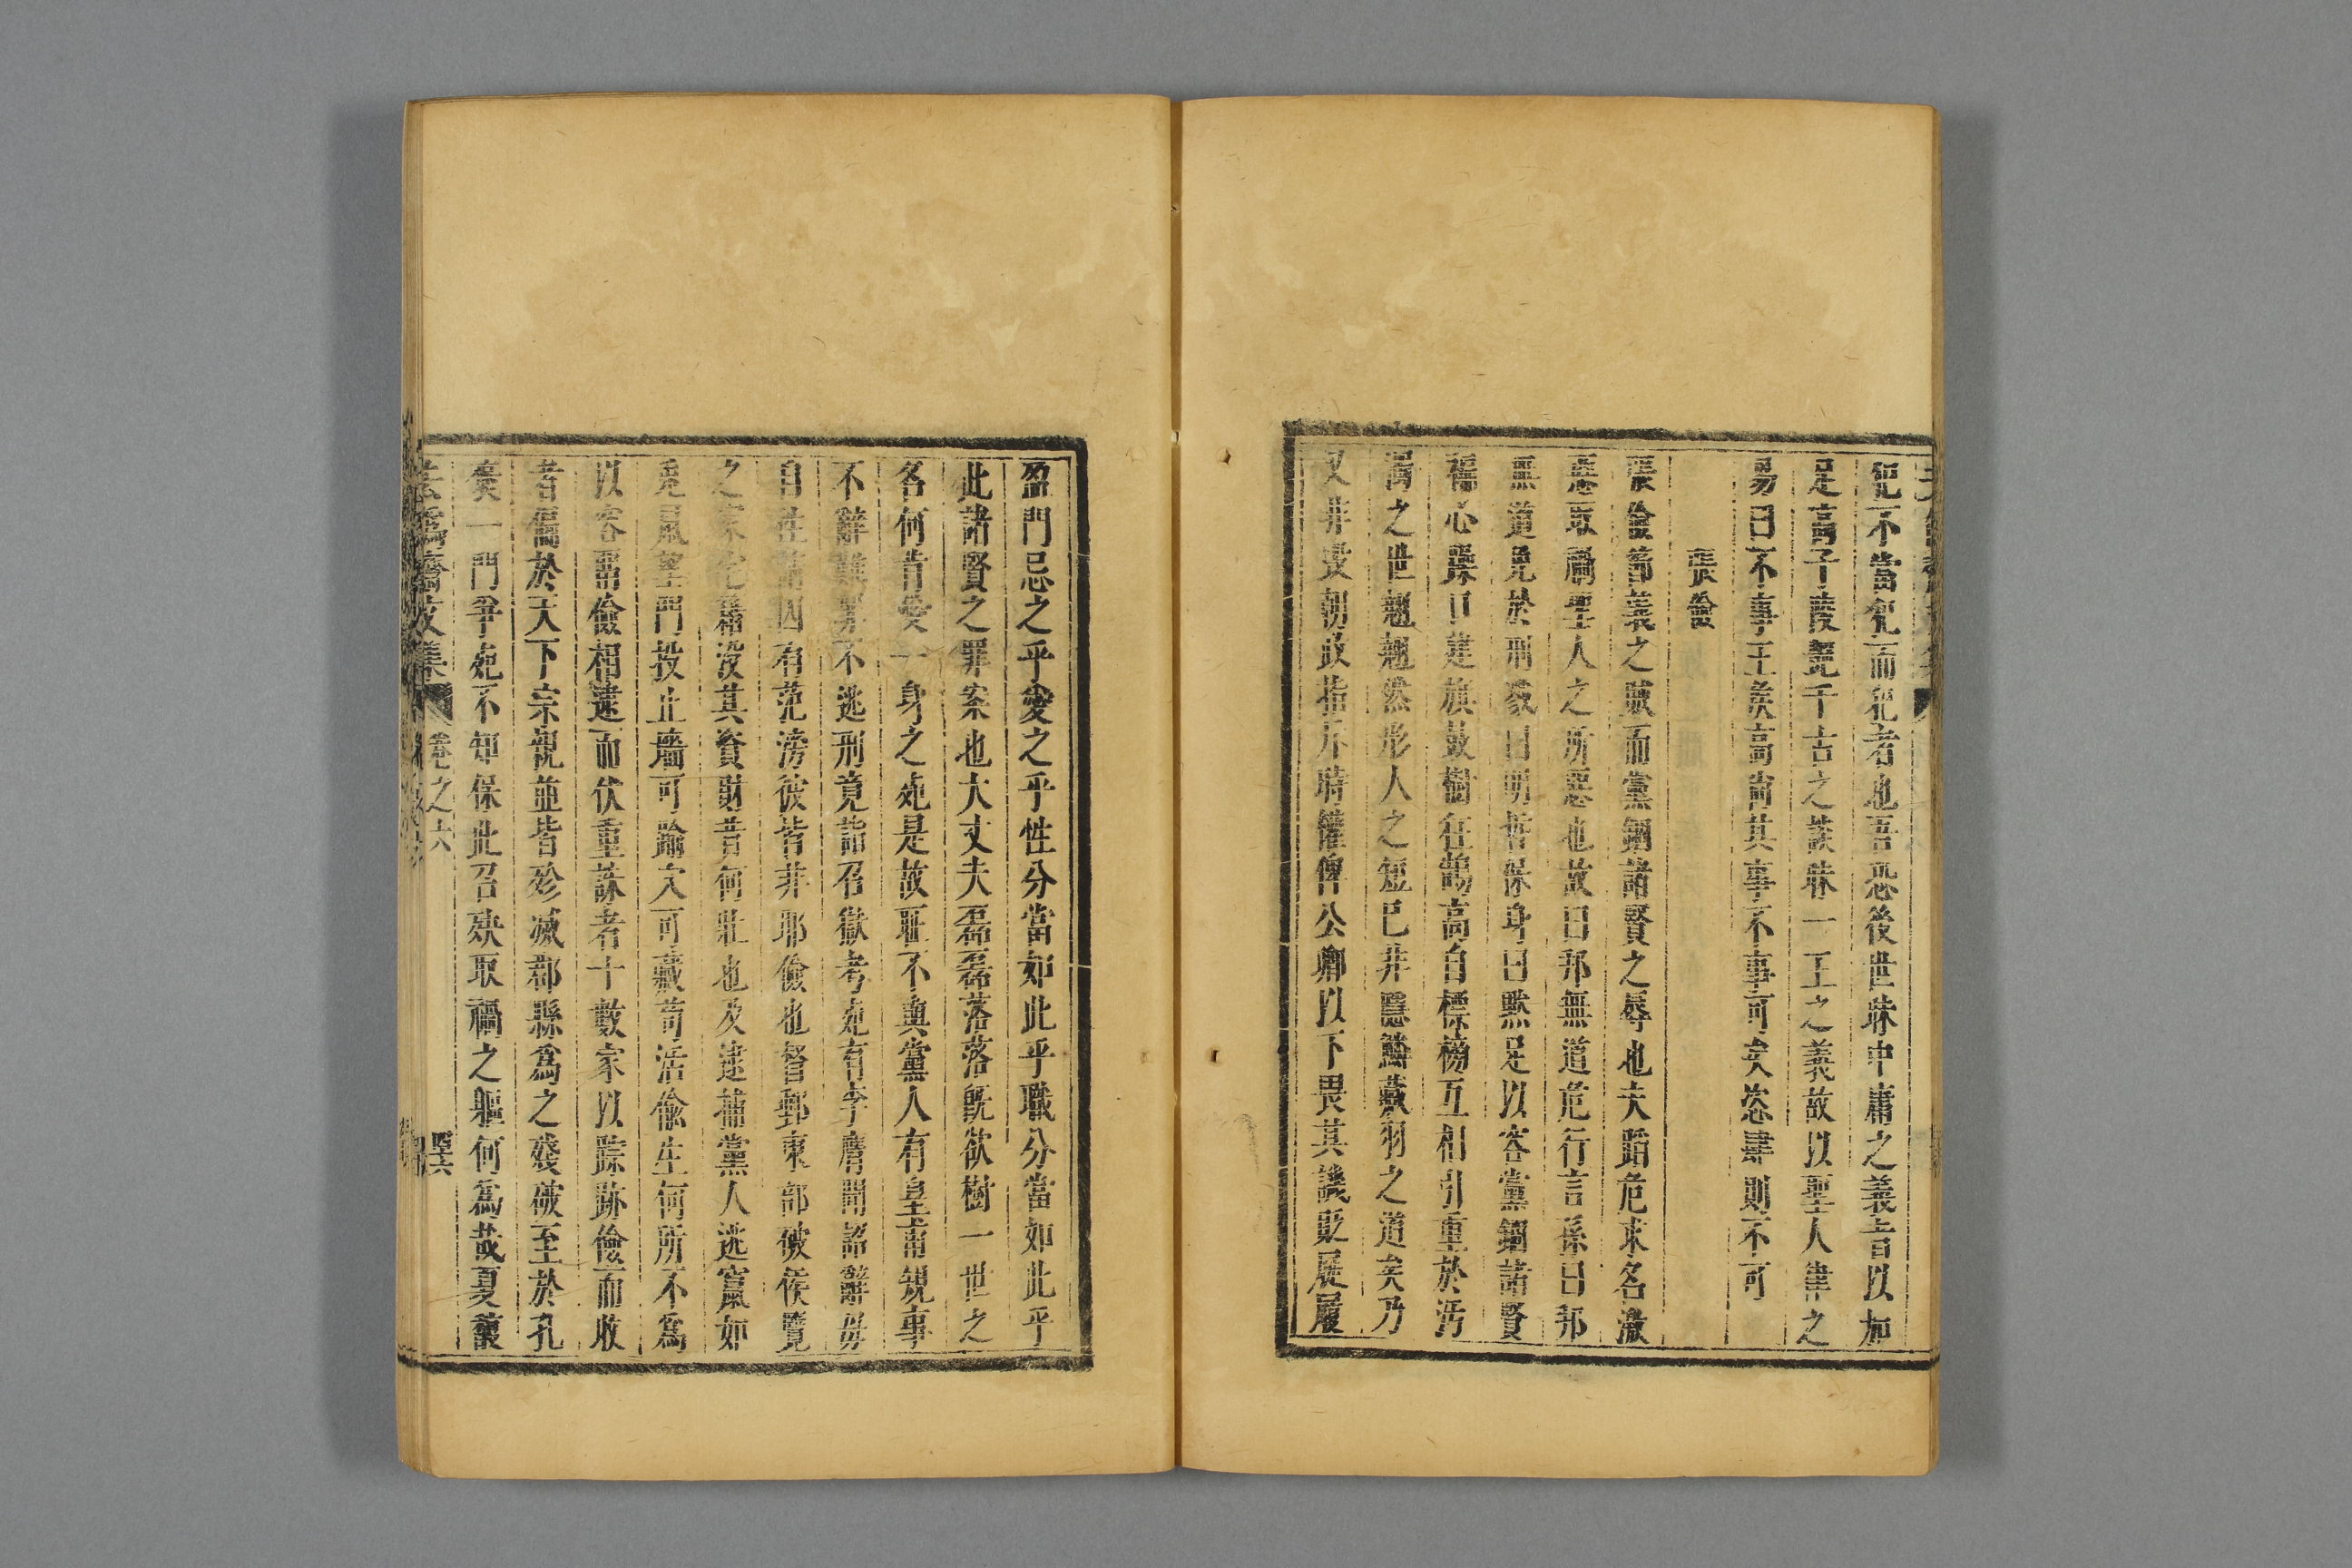 犯不當犯而犯者也吾恐後世昧中庸之義者以加
足高子陵麗千古之談昧一王之義故以聖人律之
易曰不事王矦高尚其事不事可矣恣肆則不可
張儉
張儉節義之賊而黨錮諸賢之辱也夫蹈危求名激
惹取禍聖人之所惡也故曰邦無道危行言孫曰邦
無道免於刑戮曰明哲保身曰默足以容黨錮諸賢
褊心躁口建旗鼓樹徃鵠高自標榜互相引重於汚
濁之世翹翹然形人之短已非隱鱗藏羽之道矣乃
又非訐朝政指斥時權俾公卿以下畏其譏貶屣履
盈門忌之乎愛之乎性分當如此乎職分當如此乎
此諸賢之罪案也大丈夫磊磊落落旣欲樹一世之
名何昔愛一身之死是故耻不與黨人有皇甫規事
不辭難罪不逃刑竟詣召獄考死有李膺聞詔辭毋
自徃請囚有范滂彼皆非耶儉也督郵東部破侯覽
之家宅藉沒其資財昔何壯也及逮捕黨人逃竄如
兎鼠望門投止墻可踰穴可藏苟活偷生何所不爲
以容匿儉相逮而伏重誅者十數家以踪跡儉而收
者徧於天下宗親並皆殄滅郡縣爲之殘破至於孔
褒一門爭死不知保此召殃取禍之軀何爲哉夏馥
去僞齋文集
卷之六